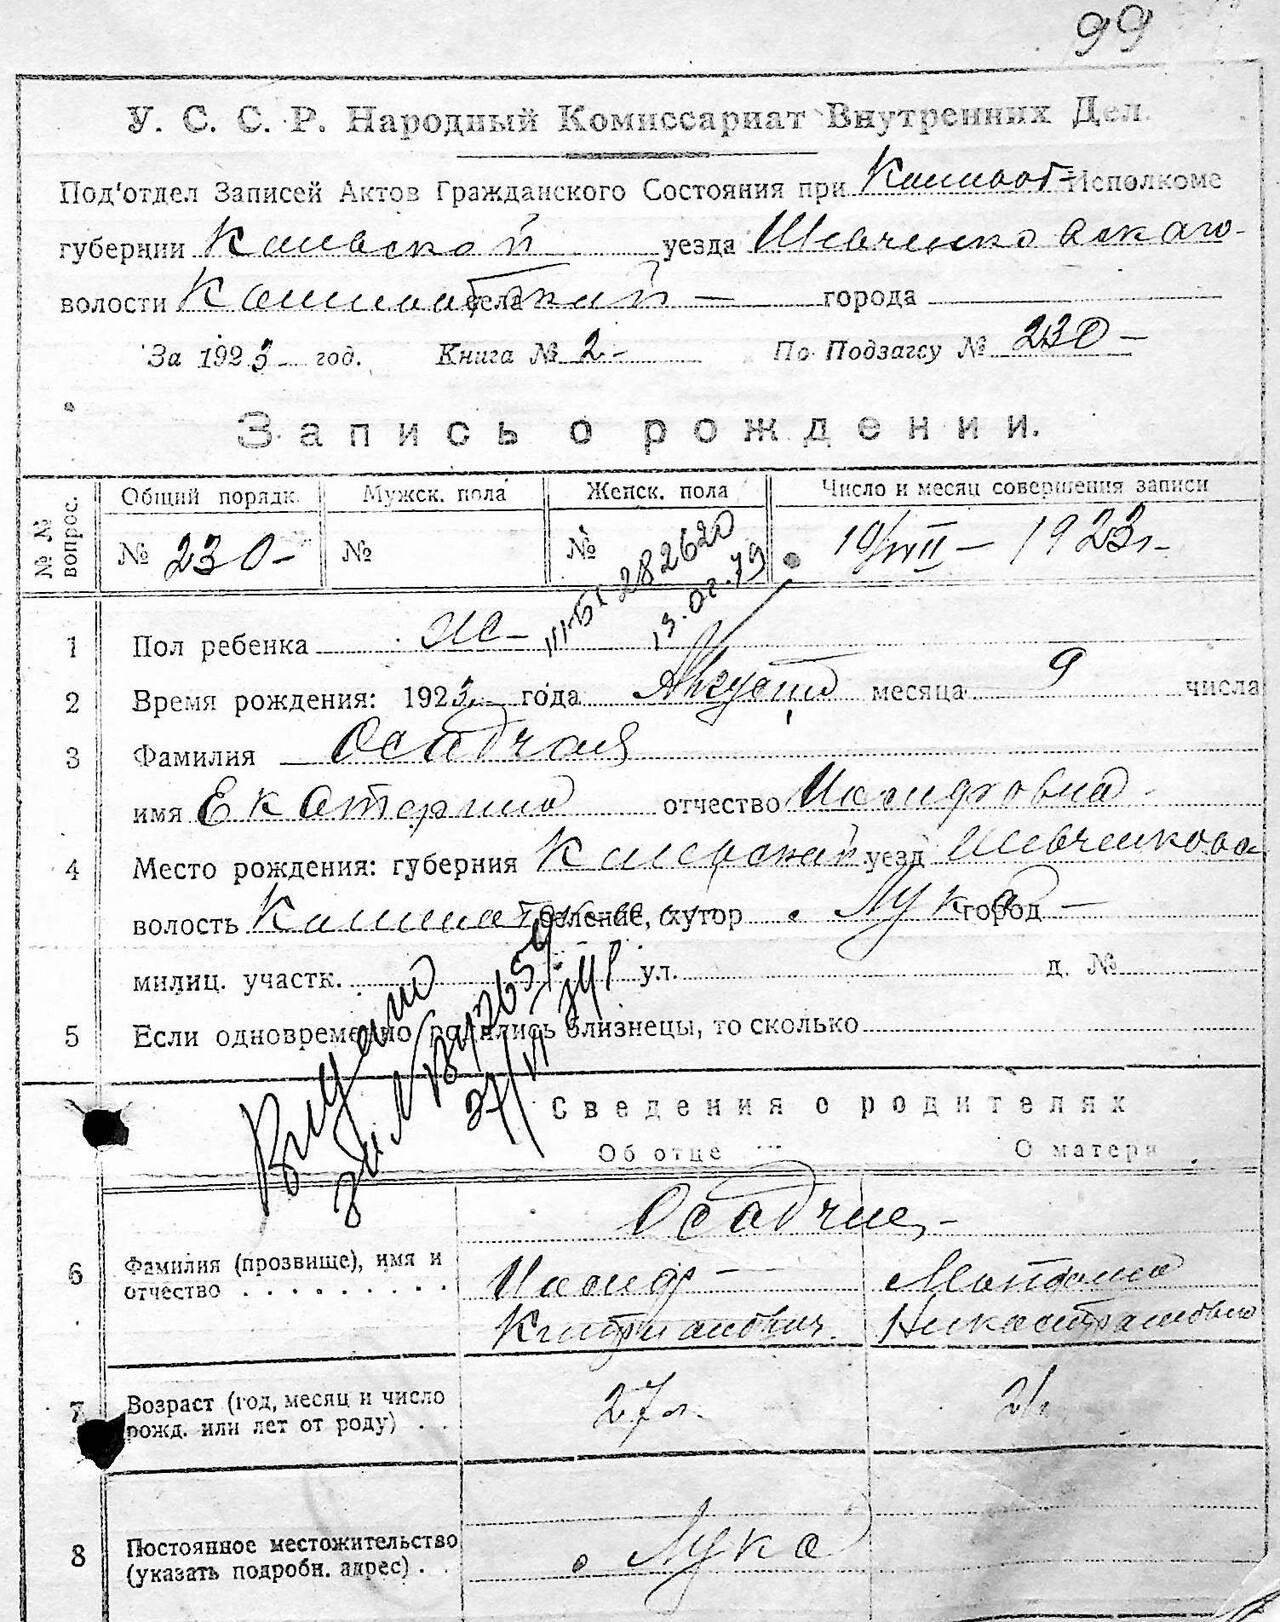 99
У. С. С. Р. Народный Комиссариат Внутренних Дел.
Под'отдел Записей Актов Гражданского Состояния при Исполкоме
губернии Киевской уезда Шевченковскаго
волости села города
За 1923 год. Книга № 2 По Подзагсу № 230
Запись о рождении.
№ № вопрос. Общий порядк. Мужск. пола Женск. пола Число и месяц совершения записи
№ 230 № № 10/VIII 1923
III-БК 282620
13.02.79
1 Пол ребенка ж
2 Время рождения: 1923 года Август месяца 9 числа
3 Фамилия Осадчая
имя Екатерина отчество Иосифовна
4 Место рождения: губерния Киевской уезд Шевченков
волость селение, хутор с. Лука город
милиц. участк. ул. д. №
5 Если одновременно родились близнецы, то сколько
Сведения о родителях
Об отце О матери
Осадчие
6 Фамилия (прозвище), имя и отчество Иосиф
Киприанович Никостратовна
7 Возраст (год, месяц и число рожд. или лет от роду) 27 л.
8 Постоянное местожительство (указать подробн. адрес) с. Лука